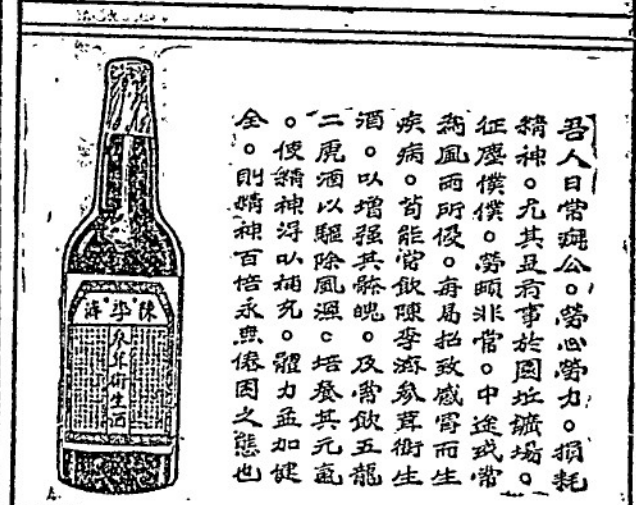 吾人日常辦公。勞心勞力。損耗
精神。尤其且有事於園坵礦場。
征塵僕僕。勞頓非常。中途或常
為風雨所侵。每易招致感冒而生
疾病。苟能常飲陳李濟參茸衛生
酒。以增强其體魄。及常飲五龍
二虎酒以驅除風濕。培養其元氣
。使精神得以補充。體力益加健
全。則精神百倍永無倦困之態也
陳李濟
參茸衛生酒